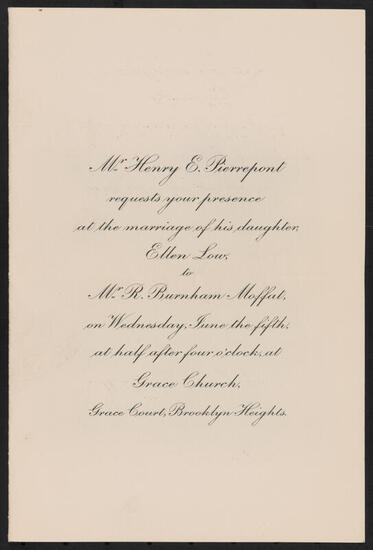 Mr. Henry E. Pierrepont
requests your presence
at the marriage of his daughter,
Ellen Low,
to
Mr. R. Burnham Moffat,
on Wednesday, June the fifth,
at half after four o'clock, at
Grace Church,
Grace Court, Brooklyn Heights.